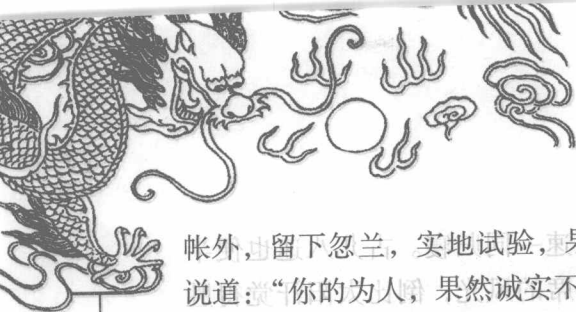 帐外，留下忽兰，实地试验，果
说道：“你的为人，果然诚实不